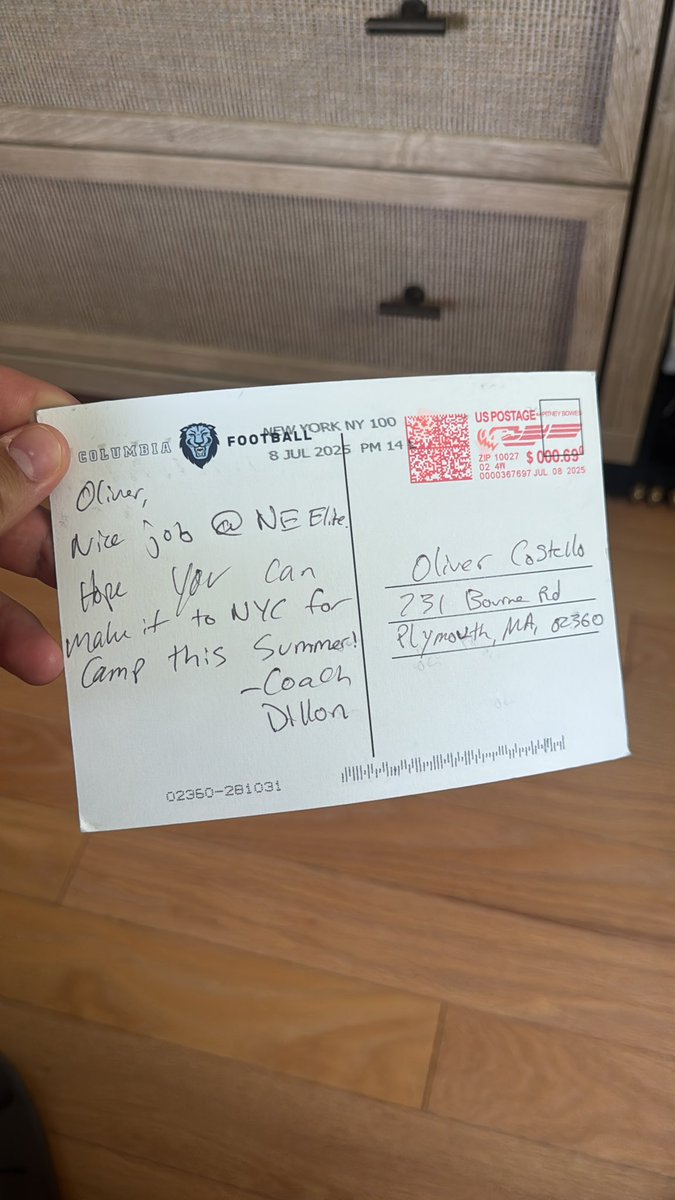 COLUMBIA FOOTBALL
NEW YORK NY 100
8 JUL 2025 PM 14
US POSTAGE PITNEY BOWES
ZIP 10027 $ 000.69
02 4W
0000367697 JUL 08 2025
Oliver,
Nice job @ NE Elite.
Hope you can
make it to NYC for
Camp this Summer!
-Coach
Dillon
Oliver Costello
231 Bourne Rd
Plymouth, MA, 02360
02360-281031